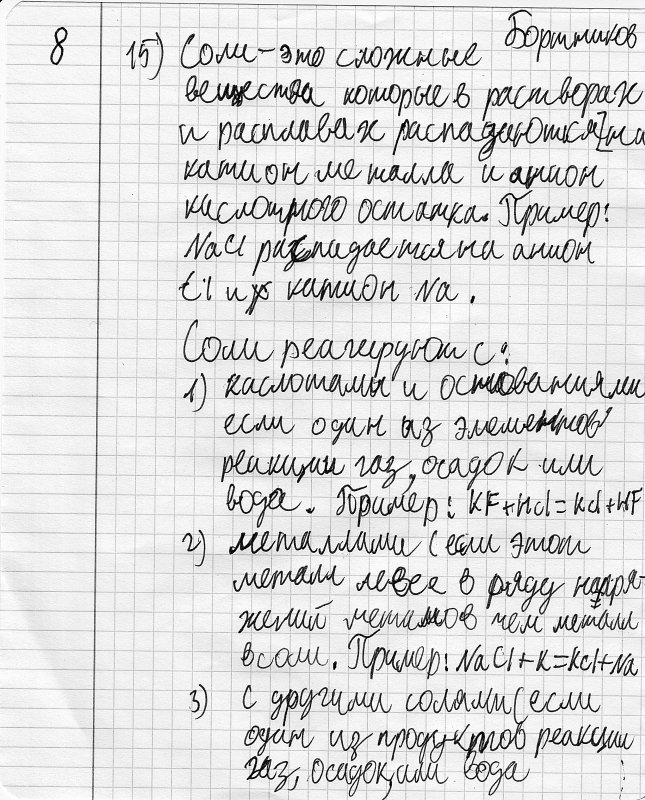 Бортников
8 15) Соли – это сложные
вещества которые в растворах
и расплавах распадаются на
катион металла и анион
кислотного остатка. Пример:
NaCl распадается на анион
Cl и катион Na.
Соли реагируют с:
1) кислотами и основаниями
если один из элементов
реакции газ, осадок или
вода. Пример: KF+HCl=KCl+HF
2) металлами (если этот
металл левее в ряду напря-
жений металлов чем металл
в соли. Пример: NaCl+K=KCl+Na
3) с другими солями (если
один из продуктов реакции
газ, осадок, или вода